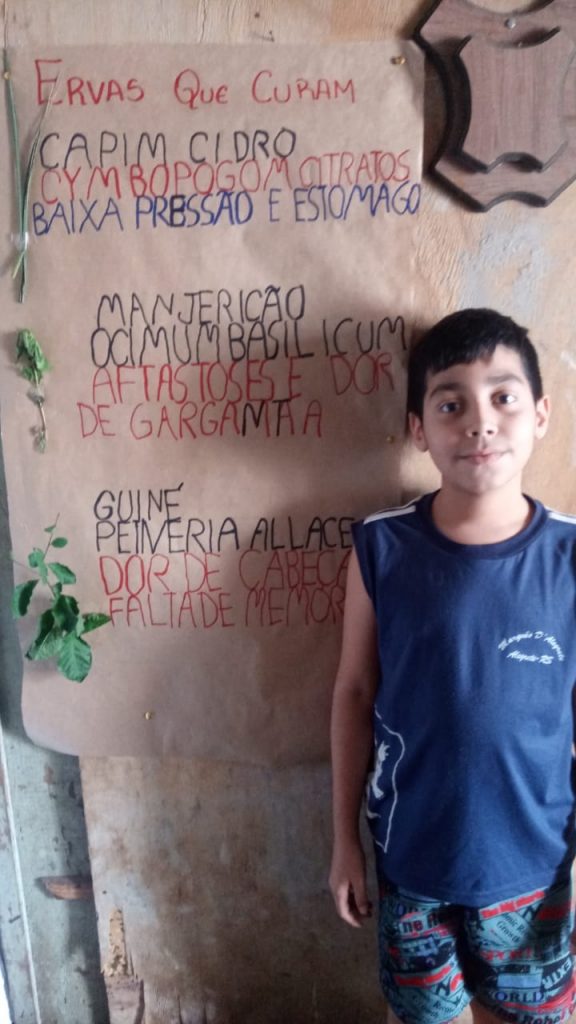 ERVAS QUE CURAM
CAPIM CIDRO
CYMBOPOGOM CITRATOS
BAIXA PRESSÃO E ESTOMAGO
MANJERICÃO
OCIMUM BASILICUM
AFTAS TOSES E DOR
DE GARGAMTA A
GUINÉ
PETVERIA ALLACE
DOR DE CABEÇA
FALTA DE MEMOR
Marquês D'Alegrete
Alegrete-RS